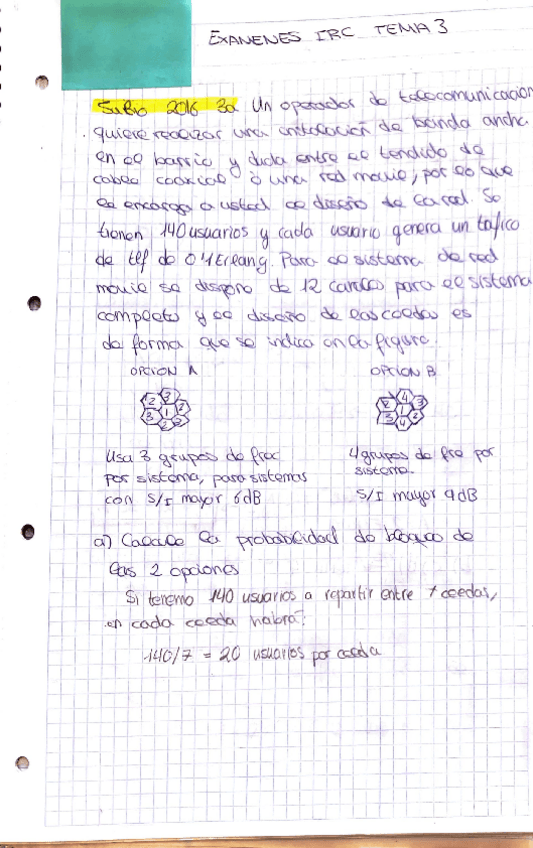 EXAMENES IRC TEMA 3
JUNIO 2016 3a Un operador de telecomunicacion
quiere realizar una instalación de banda ancha
en el barrio y duda entre el tendido de
cable coaxial o una red movil, por lo que
le encarga a usted el diseño de la red. Se
tienen 140 usuarios y cada usuario genera un tráfico
de tlf de 0'1 Erlang. Para el sistema de red
movil se dispone de 12 canales para el sistema
completo y el diseño de las celdas es
de forma que se indica en la figura.
OPCION A OPCION B
2 3 1 2 3 2 2
4 2 1 3 3 2 4
Usa 3 grupos de frec
por sistema, para sistemas
con S/I mayor 6dB
4 grupos de fre por
sistema.
S/I mayor 9dB
a) Calcule la probabilidad de bloqueo de
las 2 opciones
Si tenemo 140 usuarios a repartir entre 7 celdas,
en cada celda habra:
140/7 = 20 usuarios por celda